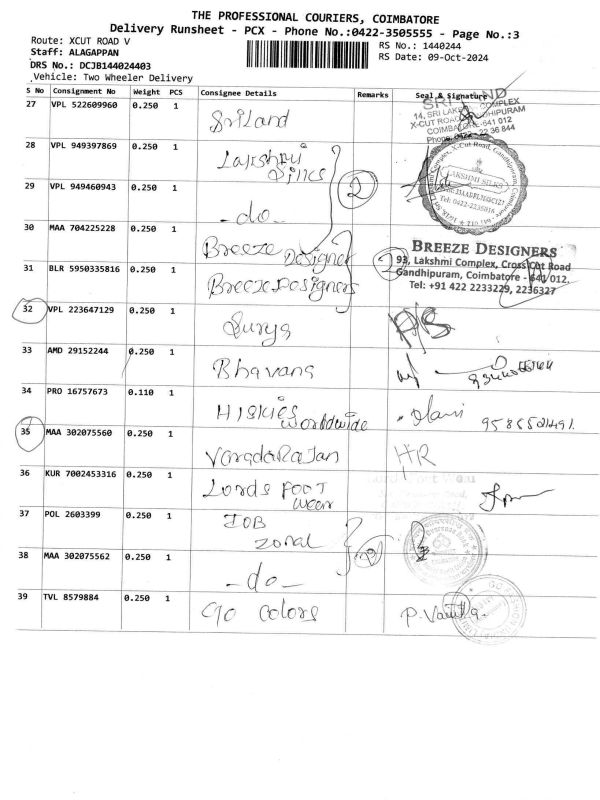 THE PROFESSIONAL COURIERS, COIMBATORE
Delivery Runsheet - PCX - Phone No.:0422-3505555 - Page No.:3
Route: XCUT ROAD V
RS No.: 1440244
Staff: ALAGAPPAN
RS Date: 09-Oct-2024
DRS No.: DCJB144024403
Vehicle: Two Wheeler Delivery
S No Consignment No Weight PCS Consignee Details Remarks Seal & Signature
27 VPL 522609960 0.250 1 Sriland
SRI LAND
14, SRI LAKSHMI COMPLEX
X-CUT ROAD, GANDHIPURAM
COIMBATORE-641 012
28 VPL 949397869 0.250 1 Lakshmi
Silks
2
LAKSHMI SILKS
Tel: 0422-2235816
29 VPL 949460943 0.250 1 -do-
30 MAA 704225228 0.250 1 Breeze Designer
BREEZE DESIGNERS
93, Lakshmi Complex, Cross Cut Road
Gandhipuram, Coimbatore - 641 012.
Tel: +91 422 2233229, 2236327
31 BLR 5950335816 0.250 1 Breeze Designers
2
32 VPL 223647129 0.250 1 Surya
33 AMD 29152244 0.250 1 Bhavana
34 PRO 16757673 0.110 1 Hiskies
Worldwide
35 MAA 302075560 0.250 1 VaradaRajan
HR
36 KUR 7002453316 0.250 1 Lords Foot
wear
37 POL 2603399 0.250 1 IOB
Zonal
2
38 MAA 302075562 0.250 1 -do-
39 TVL 8579884 0.250 1 Go Colors